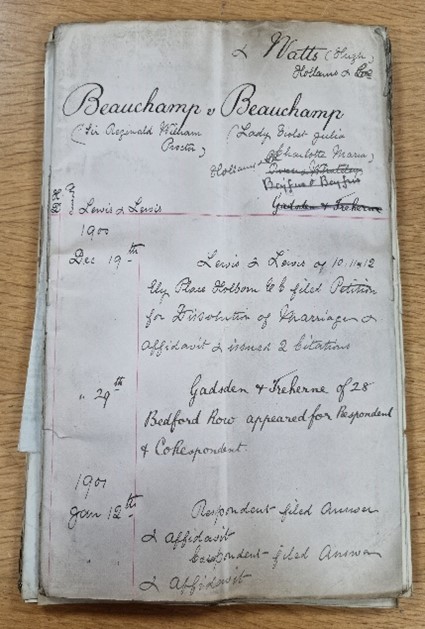 & Watts (Hugh)
Hollams & Coe
Beauchamp v Beauchamp
(Sir Reginald William
Proctor)
(Lady Violet Julia
Charlotte Maria)
Hollams &
Beyfus & Beyfus
Gadsden & Treherne
Lewis & Lewis
1900
Dec 19th
Lewis & Lewis of 10.11 & 12
Ely Place Holborn EC filed Petition
for Dissolution of Marriage &
Affidavit & issued 2 Citations
" 29th
Gadsden & Treherne of 28
Bedford Row appeared for Respondent
& CoRespondent.
1901
Jan 12th
Respondent filed Answer
& Affidavit
CoRespondent filed Answer
& Affidavit